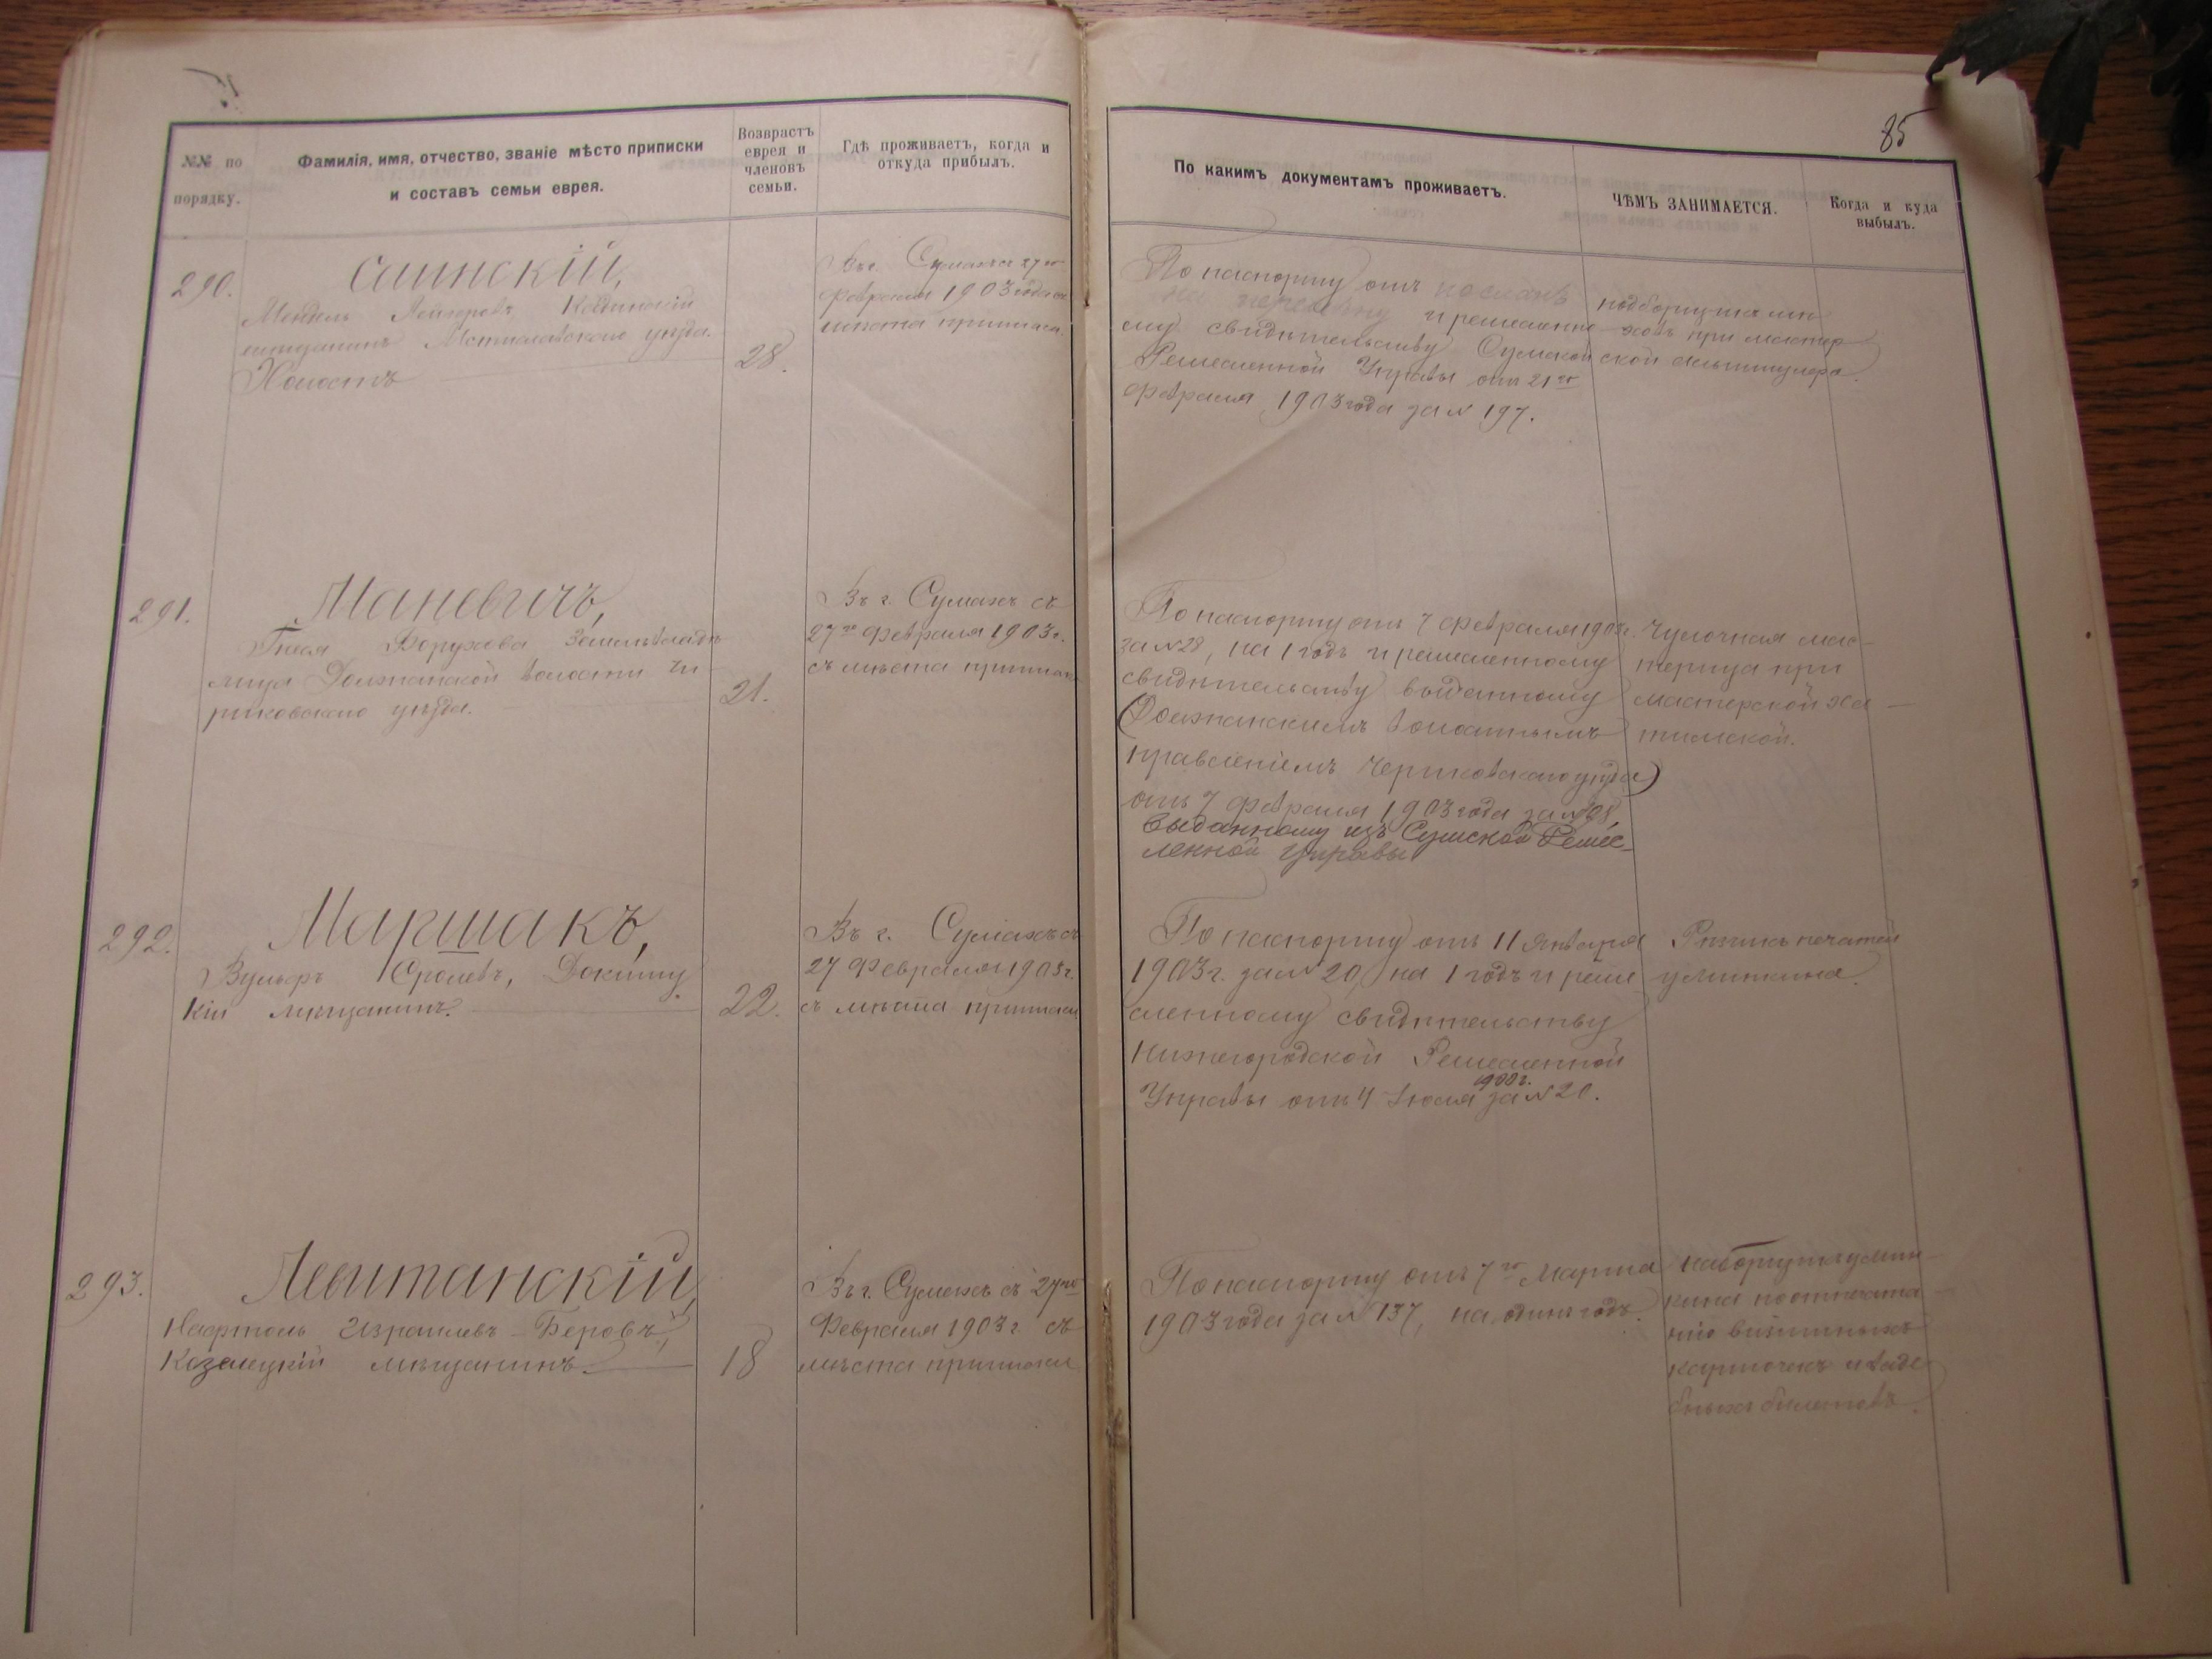 85
№№ по порядку.
Фамилія, имя, отчество, званіе мѣсто приписки
и составъ семьи еврея.
Возврастъ
еврея и
членовъ
семьи.
Гдѣ проживаетъ, когда и
откуда прибылъ.
По какимъ документамъ проживаетъ.
ЧѢМЪ ЗАНИМАЕТСЯ.
Когда и куда
выбылъ.
290.
Слинскій,
Мендель Лейзеровъ
мѣщанинъ Мстиславскаго уѣзда.
Холостъ
28.
Въ г. Сумахъ съ 27го
февраля 1903 года съ
мѣста приписки.
По паспорту отъ посланъ
на перемѣну и ремесленно
му свидѣтельству Сумской
Ремесленной Управы отъ 21го
февраля 1903 года за № 197.
подборщикъ
при мастер
ской
291.
Маневичъ,
Гнеся Борухова Земельвладѣ
лица Должанской волости Че
риковскаго уѣзда.
21.
Въ г. Сумахъ съ
27го февраля 1903 г.
съ мѣста приписки
По паспорту отъ 7 февраля 1903 г.
за № 28, на 1 годъ и ремесленному
свидѣтельству выданному
(Должанскимъ волостнымъ
правленіемъ Чериковскаго уѣзда)
отъ 7 февраля 1903 года за № 28,
выданному изъ Сумской Ремес-
ленной Управы
Чулочная мас-
терица при
мастерской
292.
Маршакъ,
Вульфъ Сролевъ, Докшиц
кій мѣщанинъ.
22.
Въ г. Сумахъ съ
27 февраля 1903 г.
съ мѣста приписки
По паспорту отъ 11 Января
1903 г. за № 20, на 1 годъ и реме
сленному свидѣтельству
Нижегородской Ремесленной
Управы отъ 4 Іюля 1900 г. за № 20.
Рѣзчикъ печатей
у Минкина.
293.
Левитанскій,
Нафтоль Израилевъ-Беровъ,
Козелецкій мѣщанинъ.
18
Въ г. Сумахъ съ 27го
Февраля 1903 г. съ
мѣста приписки
По паспорту отъ 7го Марта
1903 года за № 137, на одинъ годъ.
наборщикъ у Мин-
кина по отпечата-
нію визитныхъ
карточекъ и сваде
бныхъ билетовъ.